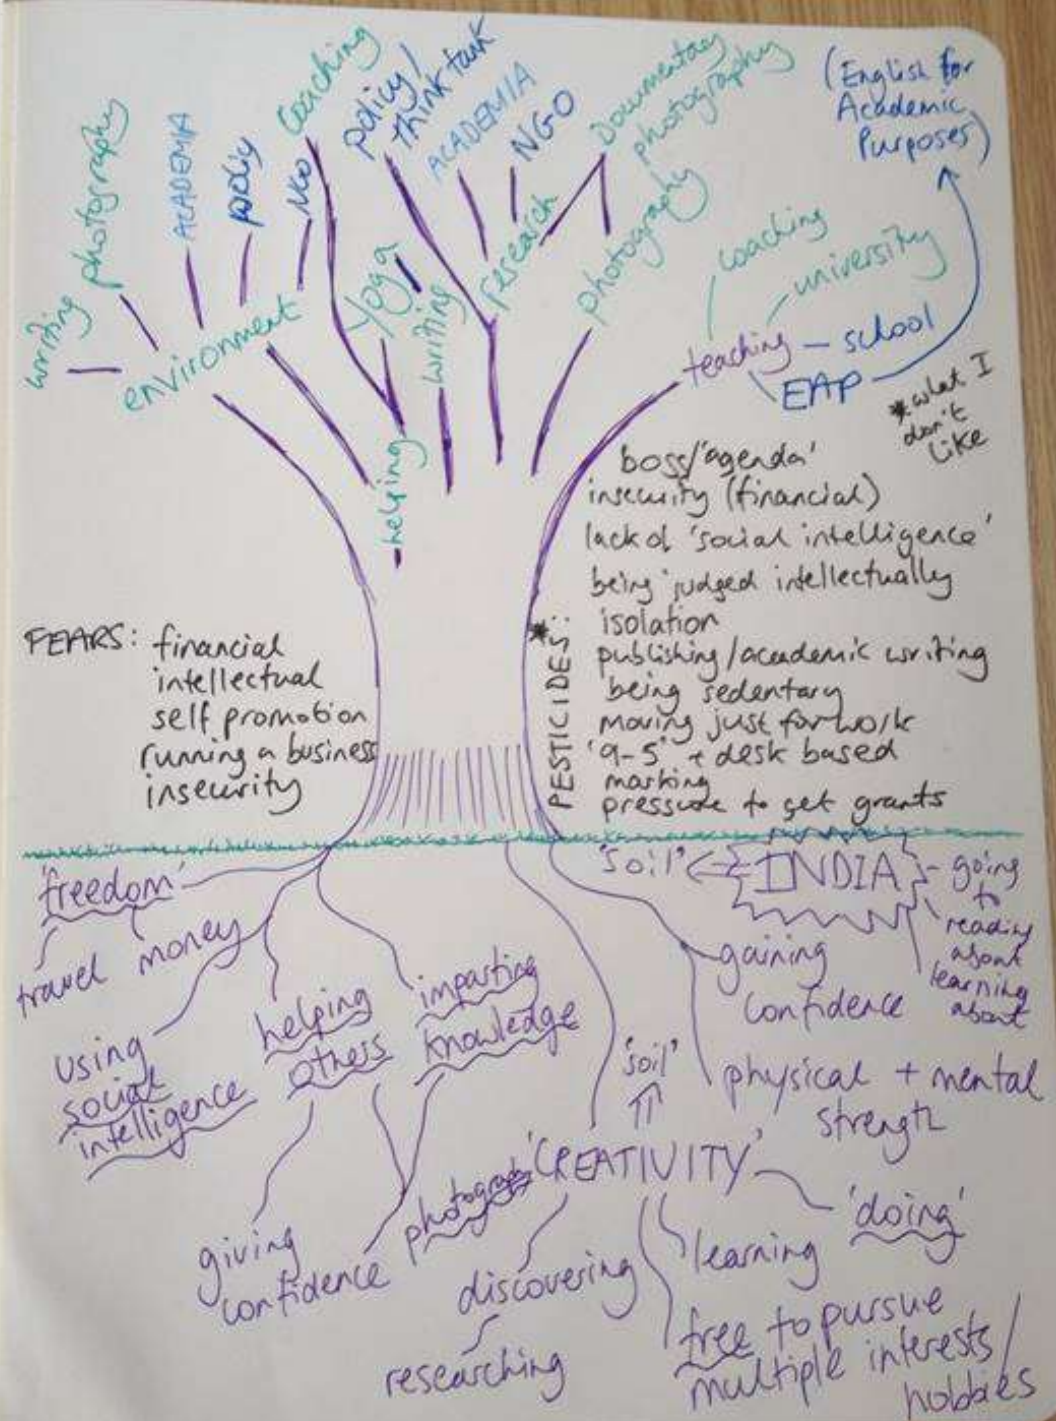 writing
photography
ACADEMIA
policy
NGO
environment
Coaching
policy/
think tank
ACADEMIA
NGO
Documentary
photography
(English for
Academic
Purposes)
Yoga
writing
research
photography
helping
coaching
university
teaching
school
EAP
*what I
don't
like
boss/'agenda'
insecurity (financial)
lack of 'social intelligence'
being judged intellectually
isolation
publishing/academic writing
being sedentary
moving just for work
'9-5' + desk based
marking
pressure to get grants
*PESTICIDES:
FEARS: financial
intellectual
self promotion
running a business
insecurity
'freedom'
travel money
using
social
intelligence
helping
others
imparting
knowledge
giving
confidence
'soil'
INDIA
going
to
reading
about
learning
about
gaining
confidence
physical + mental
strength
'soil'
'CREATIVITY'
photography
discovering
researching
learning
'doing'
free to pursue
multiple interests/
hobbies